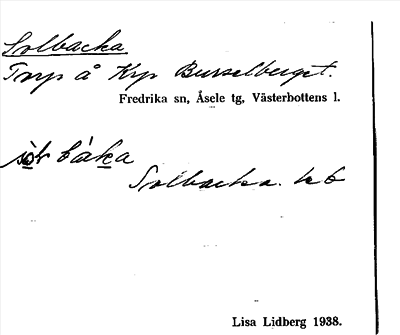 Solbacka
Torp å Krp Bursselberget.
Fredrika sn, Åsele tg, Västerbottens l.
båka
Solbacka. kb
Lisa Lidberg 1938.